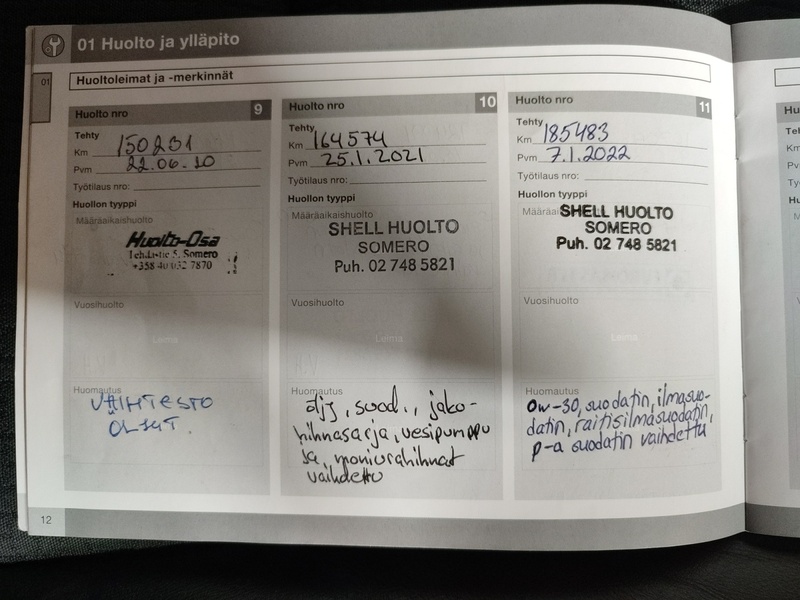 01 Huolto ja ylläpito
01
Huoltoleimat ja -merkinnät
Huolto nro 9
Tehty
Km 150231
Pvm 22.06.20
Työtilaus nro:
Huollon tyyppi
Määräaikaishuolto
Huolto-Osa
Tehdastie 5, Somero
+358 40 032 7870
Vuosihuolto
Huomautus
VAIHTESTO
ÖLJYT.
Huolto nro 10
Tehty
Km 164574
Pvm 25.1.2021
Työtilaus nro:
Huollon tyyppi
Määräaikaishuolto
SHELL HUOLTO
SOMERO
Puh. 02 748 5821
Vuosihuolto
Leima
Huomautus
öljy, suod., jako-
hihnasarja, vesipumppu
ja, moniurahihnat
vaihdettu
Huolto nro 11
Tehty
Km 185483
Pvm 7.1.2022
Työtilaus nro:
Huollon tyyppi
Määräai
SHELL HUOLTO
SOMERO
Puh. 02 748 5821
Vuosihuolto
Leima
Huomautus
0w-30, suodatin, ilmasuo-
datin, raitisilmasuodatin,
p-a suodatin vaihdettu
12